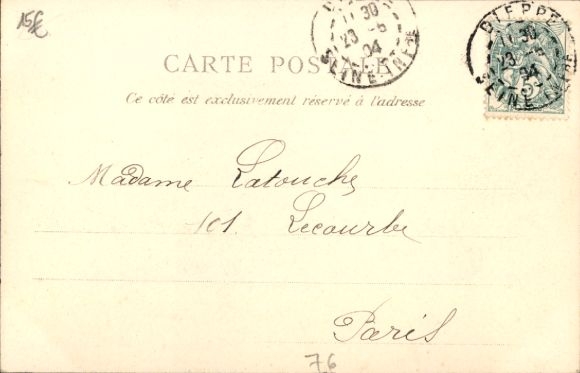 15€
DIEPPE
11 30
23 -5
04
SEINE-INFRE
DIEPPE
11 30
23 -5
04
SEINE-INFRE
CARTE POSTALE
Ce côté est exclusivement réservé à l'adresse
Madame Latouche
101 Lecourbe
Paris
76